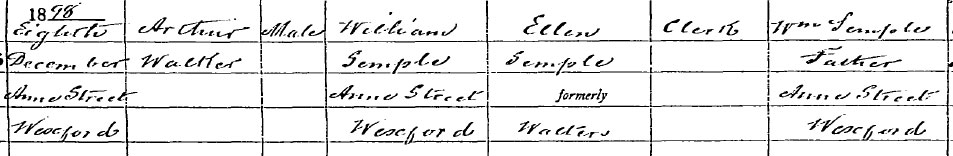 1898
Eighth Arthur Male William Ellen Clerk Wm Semple
December Walker Semple Semple Father
Anne Street Anne Street formerly Anne Street
Wexford Wexford Walters Wexford